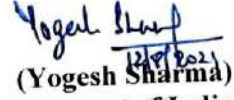 Yogesh Sharma
12/8/2021
(Yogesh Sharma)